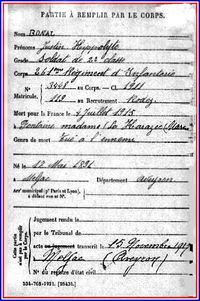 PARTIE À REMPLIR PAR LE CORPS.
Nom BONAL
Prénoms Justin Hippolyte
Grade Soldat de 2e classe
Corps 261me Régiment d'Infanterie
N° 3448 au Corps. — Cl. 1911
Matricule. 119 au Recrutement Rodez
Mort pour la France le 4 juillet 1915
à Fontaine madame (La Harazée) (Marne)
Genre de mort Tué à l'ennemi
Né le 12 Mai 1891
à Meljac Département Aveyron
Arr¹ municipal (pr Paris et Lyon),
à défaut rue et N°.
Cette partie
n'est pas à remplir
par le Corps.
Jugement rendu le
par le Tribunal de
acte ou jugement transcrit le 15 Novembre
à Meljac (Aveyron)
N° du registre d'état civil
534-708-1921. [26434].